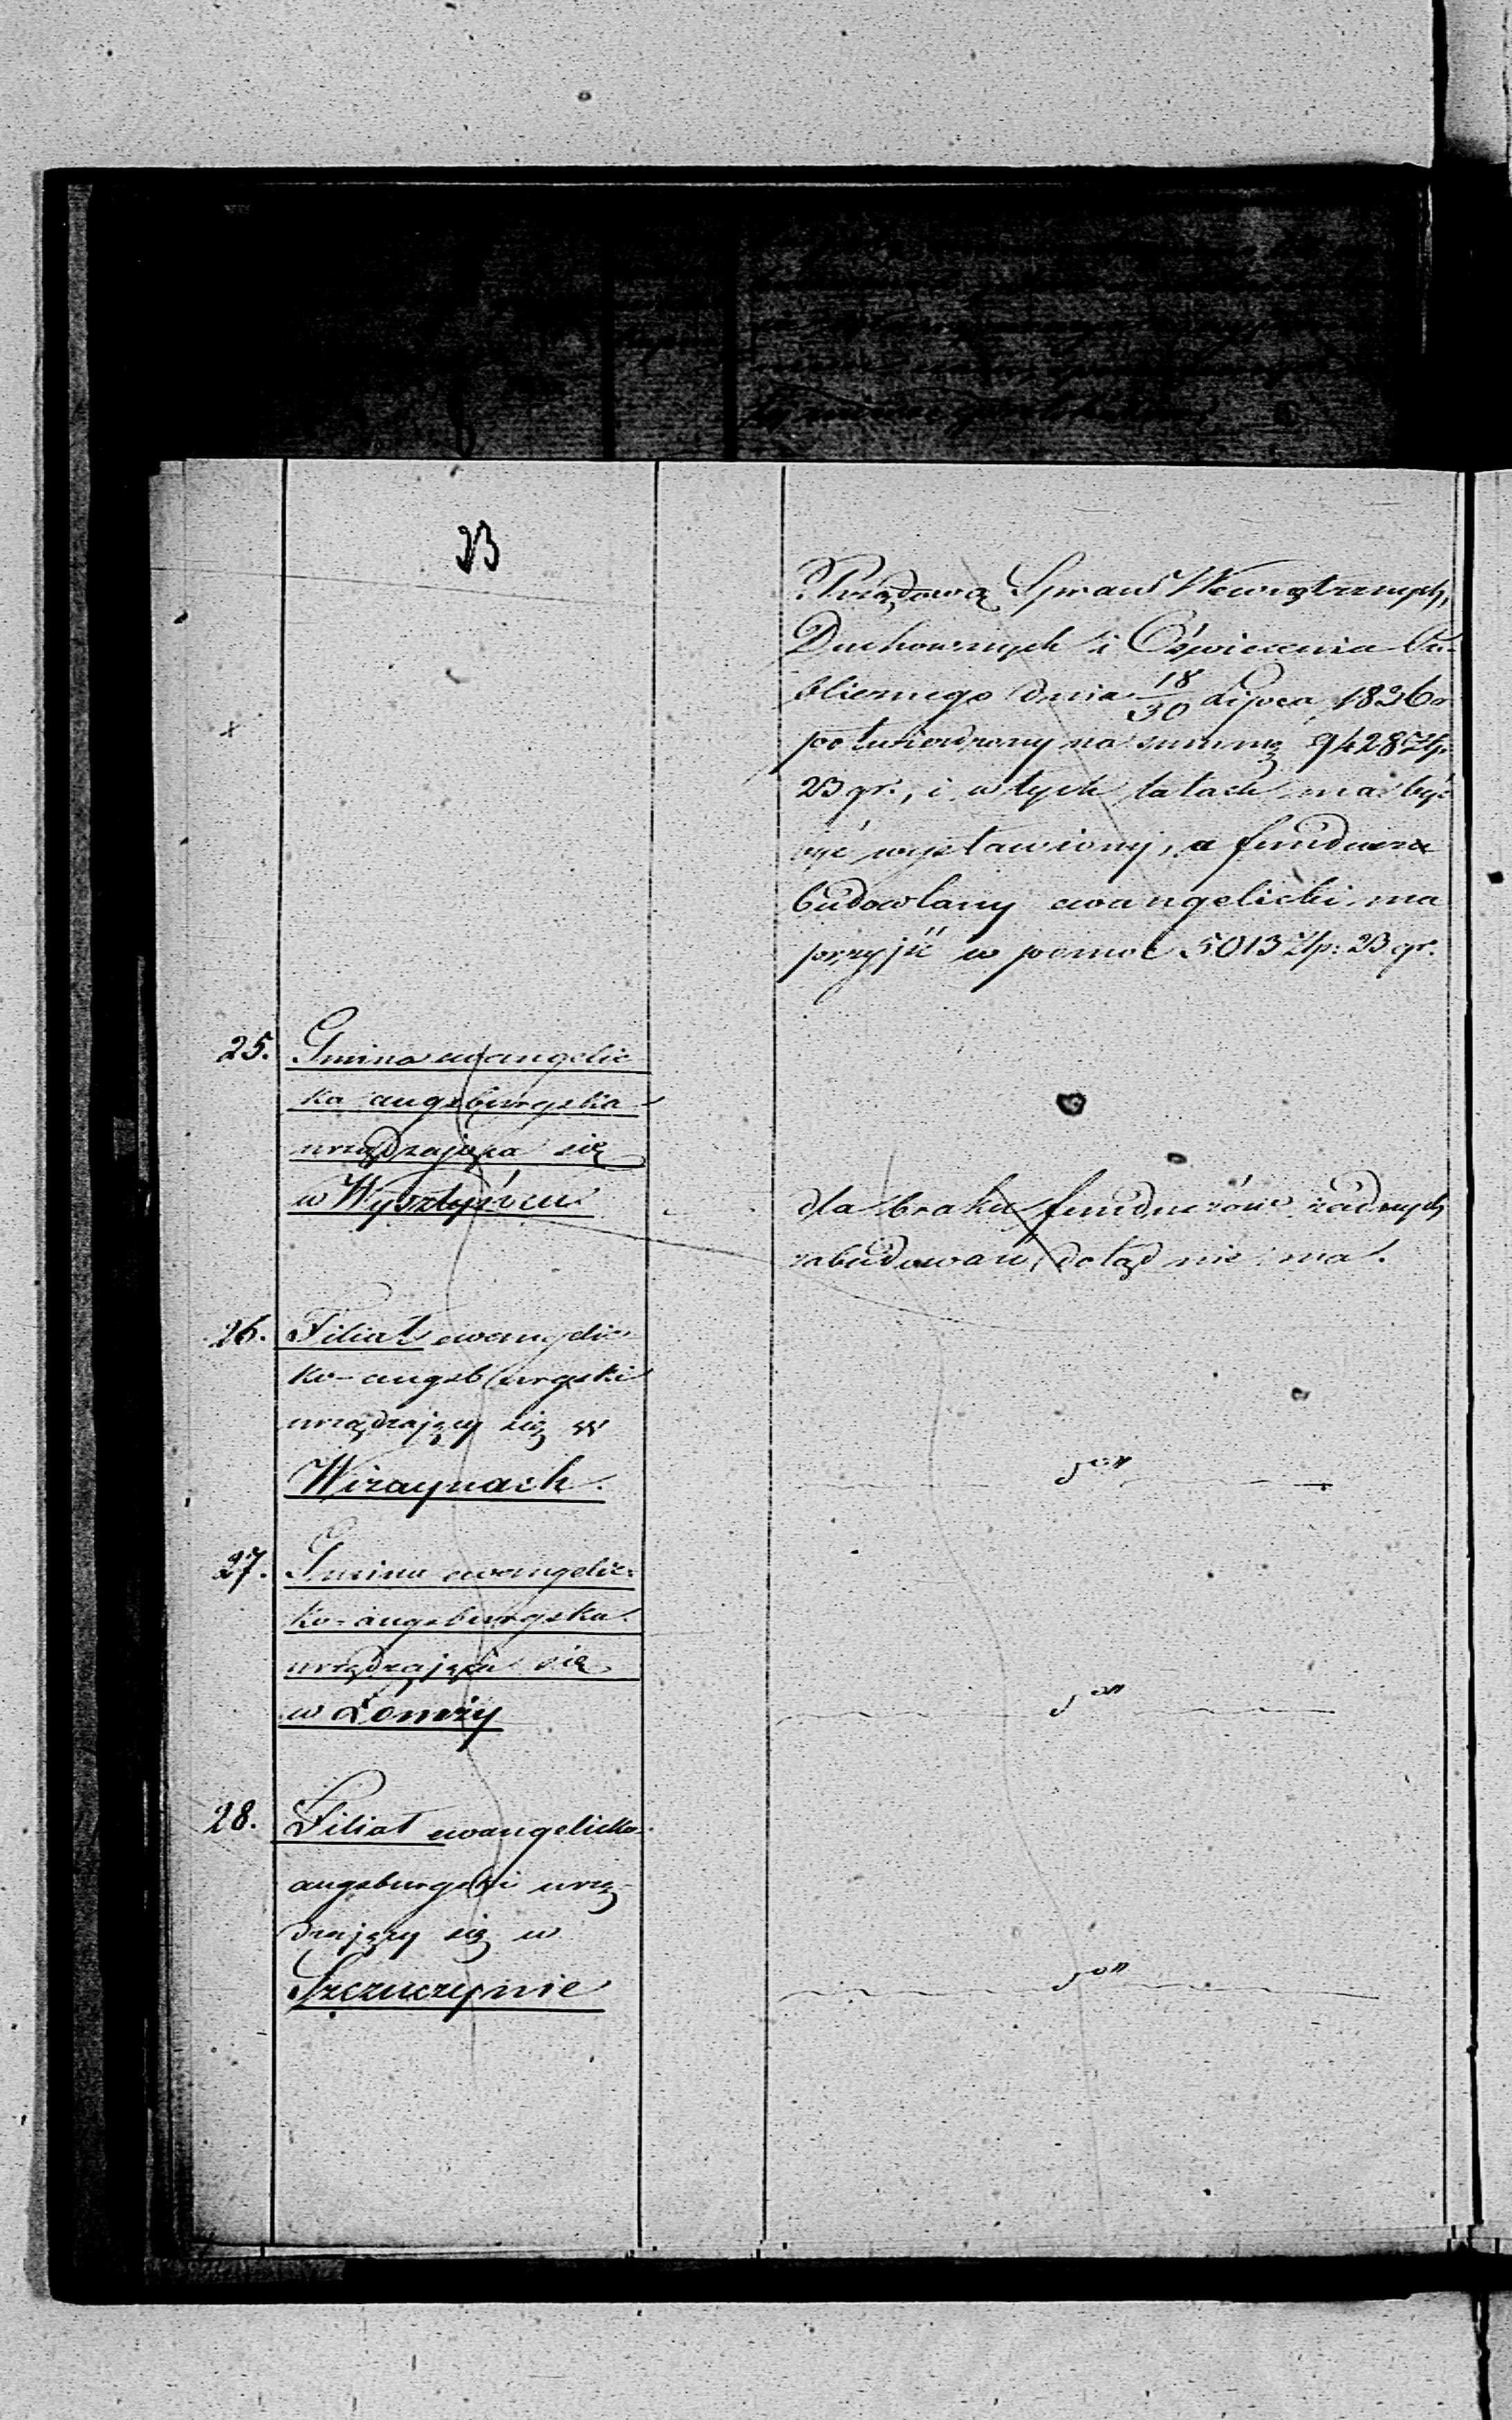 23
Rządową Spraw Wewnątrznych,
Duchownych i Oświecenia Pu-
blicznego dnia 18/30 Lipca 1836 r
potwierdzony na summę 9428 Złp.
23 gr., i w tych latach ma być
być wystawiony, a fundusz
budowlany ewangelicki ma
przyjść w pomoc 5013 Złp: 23 gr.
25. Gmina ewangelic
ka augsburgska
urządzająca się
w Wysztyńcu
dla braku funduszów żadnych
zabudowań dotąd nie ma.
26. Filiał ewangelic-
ko-augsburgski
urządzający się w
Wiżaynach.
27. Gmina ewangelic-
ko-augsburgska
urządzająca się
w Łomży
28. Filiał ewangelicko-
augsburgski urzą-
dzający się w
Szczuczynie